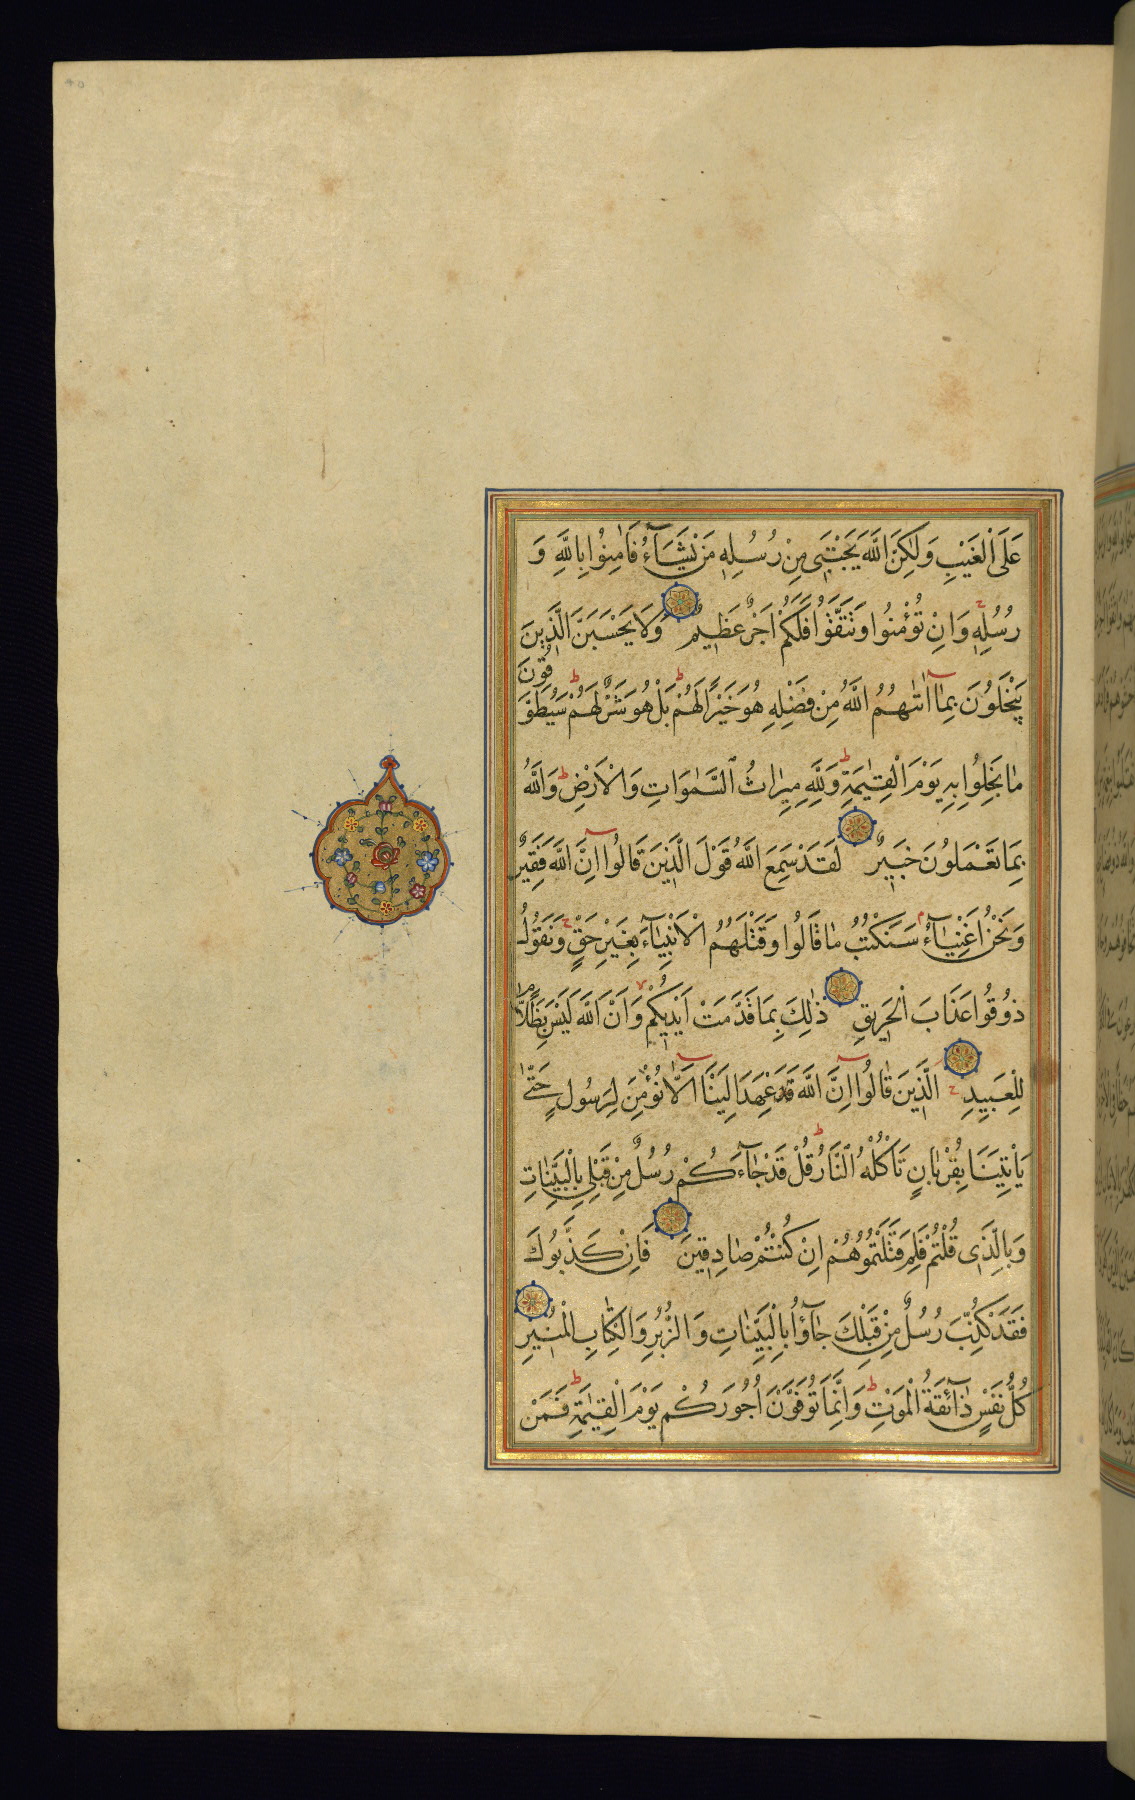 عَلَى الْغَيْبِ وَلٰكِنَّ اللَّهَ يَجْتَبِى مِنْ رُسُلِهِ مَنْ يَشَآءُ فَاٰمِنُوا بِاللَّهِ وَ
رُسُلِهِ وَاِنْ تُؤْمِنُوا وَتَتَّقُوا فَلَكُمْ اَجْرٌ عَظِيمٌ وَلَا يَحْسَبَنَّ الَّذِينَ
يَبْخَلُونَ بِمَآ اٰتٰهُمُ اللَّهُ مِنْ فَضْلِهِ هُوَ خَيْرًا لَهُمْ بَلْ هُوَ شَرٌّ لَهُمْ سَيُطَوَّقُونَ
مَا بَخِلُوا بِهِ يَوْمَ الْقِيٰمَةِ وَلِلَّهِ مِيرَاثُ السَّمٰوَاتِ وَالْاَرْضِ وَاللَّهُ
بِمَا تَعْمَلُونَ خَبِيرٌ لَقَدْ سَمِعَ اللَّهُ قَوْلَ الَّذِينَ قَالُوٓا اِنَّ اللَّهَ فَقِيرٌ
وَنَحْنُ اَغْنِيَآءُ سَنَكْتُبُ مَا قَالُوا وَقَتْلَهُمُ الْاَنْبِيَآءَ بِغَيْرِ حَقٍّ وَنَقُولُ
ذُوقُوا عَذَابَ الْحَرِيقِ ذٰلِكَ بِمَا قَدَّمَتْ اَيْدِيكُمْ وَاَنَّ اللَّهَ لَيْسَ بِظَلَّامٍ
لِلْعَبِيدِ الَّذِينَ قَالُوٓا اِنَّ اللَّهَ عَهِدَ اِلَيْنَآ اَلَّا نُؤْمِنَ لِرَسُولٍ حَتّٰى
يَاْتِيَنَا بِقُرْبَانٍ تَاْكُلُهُ النَّارُ قُلْ قَدْ جَآءَكُمْ رُسُلٌ مِنْ قَبْلِى بِالْبَيِّنَاتِ
وَبِالَّذِى قُلْتُمْ فَلِمَ قَتَلْتُمُوهُمْ اِنْ كُنْتُمْ صَادِقِينَ فَاِنْ كَذَّبُوكَ
فَقَدْ كُذِّبَ رُسُلٌ مِنْ قَبْلِكَ جَآؤُا بِالْبَيِّنَاتِ وَالزُّبُرِ وَالْكِتَابِ الْمُنِيرِ
كُلُّ نَفْسٍ ذَآئِقَةُ الْمَوْتِ وَاِنَّمَا تُوَفَّوْنَ اُجُورَكُمْ يَوْمَ الْقِيٰمَةِ فَمَنْ